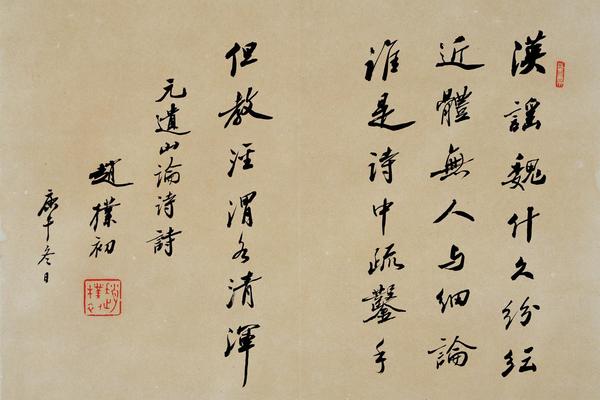 漢謠魏什久紛紜
近體無人与細論
誰是詩中疏鑿手
但教涇渭各清渾
元遺山論诗詩
趙樸初
庚午冬日